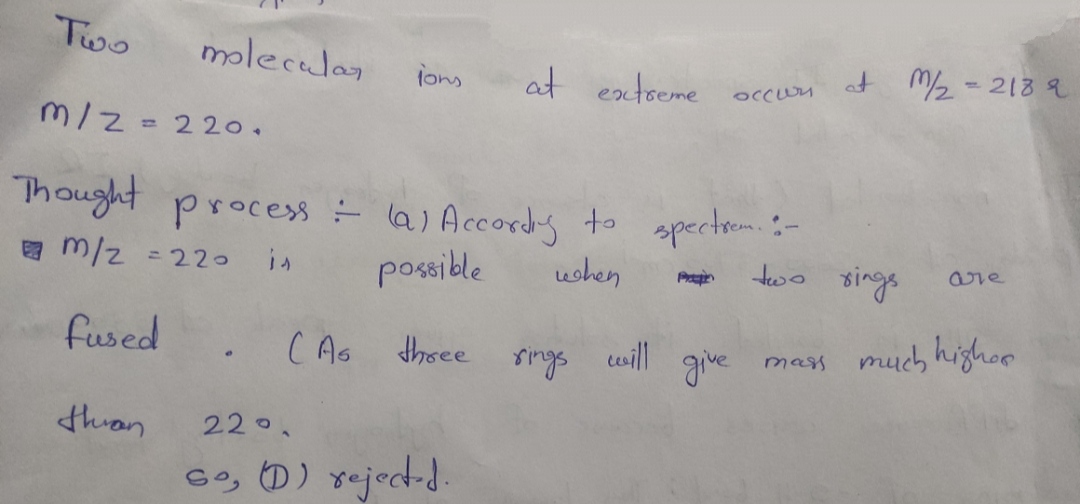 Two molecular ions at extreme occurs at m/z = 218 &
m/z = 220.
Thought process :- (a) Accordig to spectrem. :-
m/z = 220 is possible when two rings are
fused . (As three rings will give mass much higher
than 220.
so, (D) rejected.